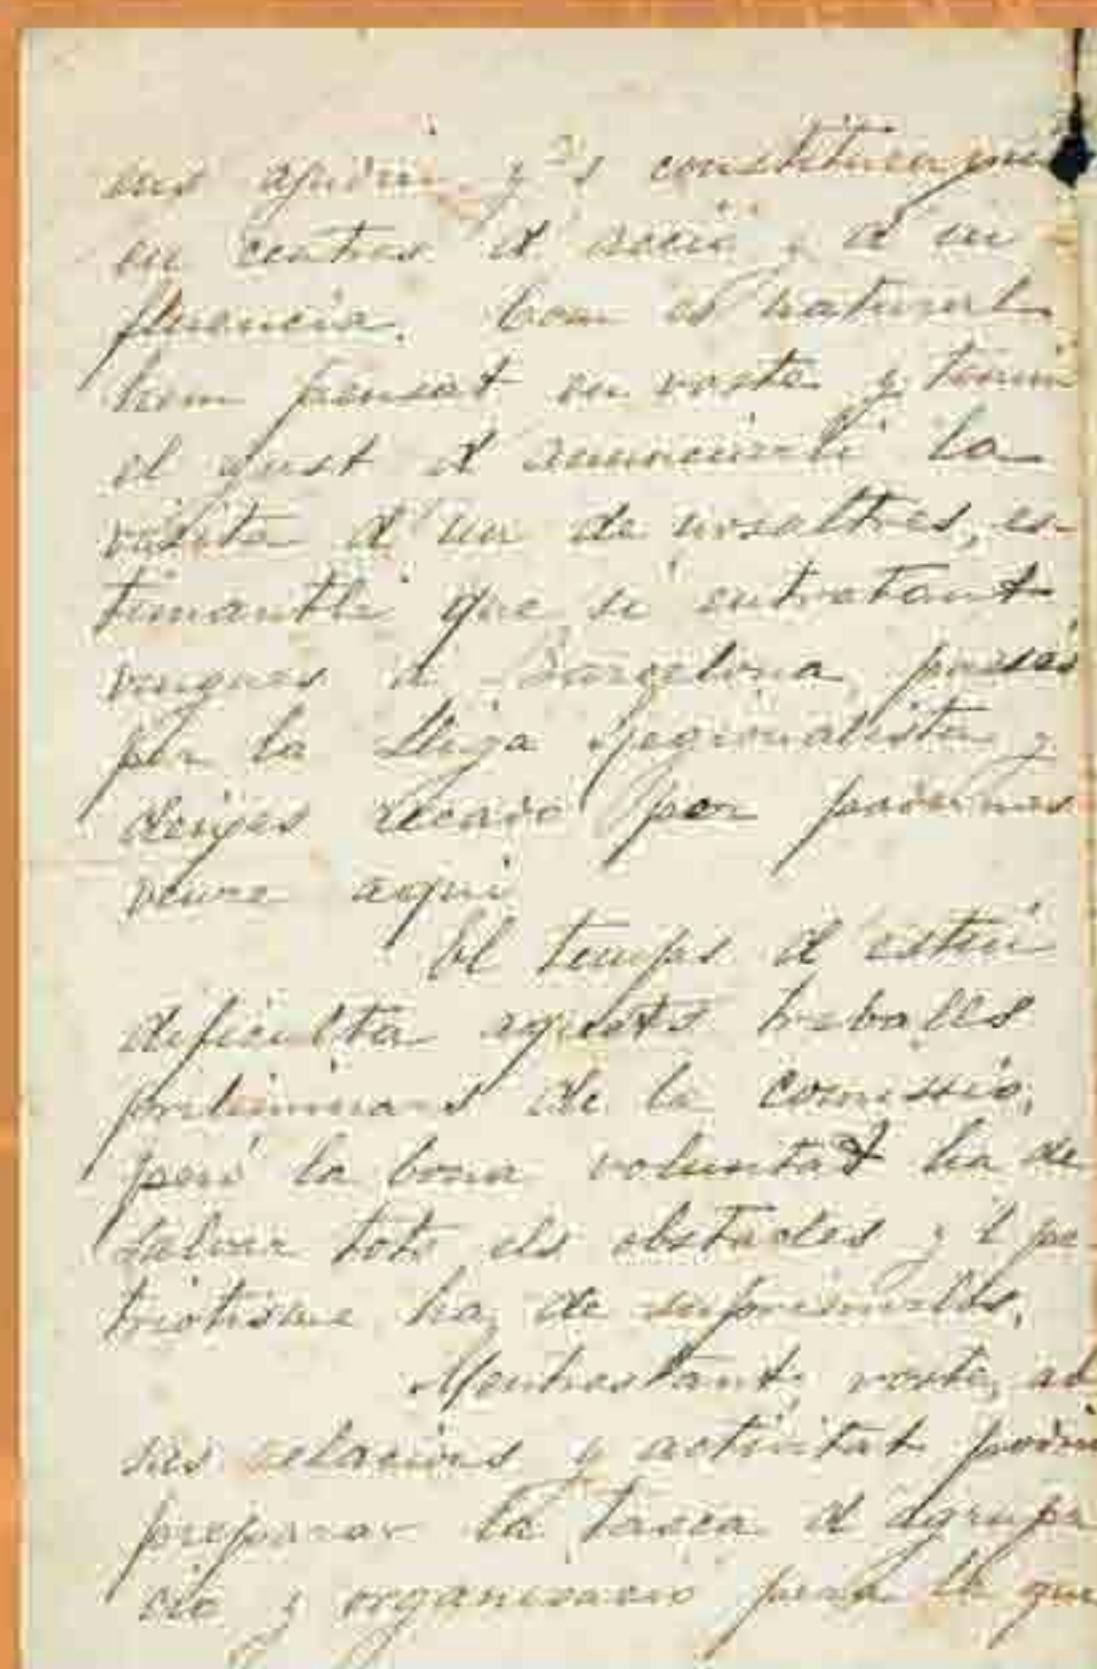 ens ajudin y 's constituexin
en centres d' acció y d' in-
fluencia. Com es natural
hem pensat en vosté y tenim
el gust d' anunciarli la
visita d' un de nosaltres, es-
timantli que si entretant
vingués á Barcelona, passés
per la Lliga Regionalista y
deixés recado per poder-nos
veure aquí.
El temps d' estiu
dificulta aquests treballs
preliminars de la comissió,
peró la bona voluntat ha de
salvar tots els obstacles y 'l pa-
triotisme ha de suprimirlos.
Mentrestant, vosté, ab
ses relacions y activitat podria
preparar la tasca d' agrupa
ció y organisació pera la que